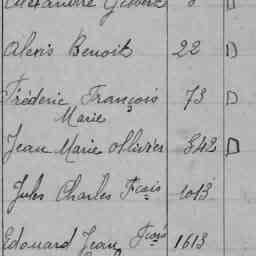 Alexandre Gilbert 8 D
Alexis Benoit 22 D
Fréderic François 73 D
Marie
Jean Marie Ollivier 842 D
Jules Charles Fçois 1013
Edouard Jean Fçois 1613